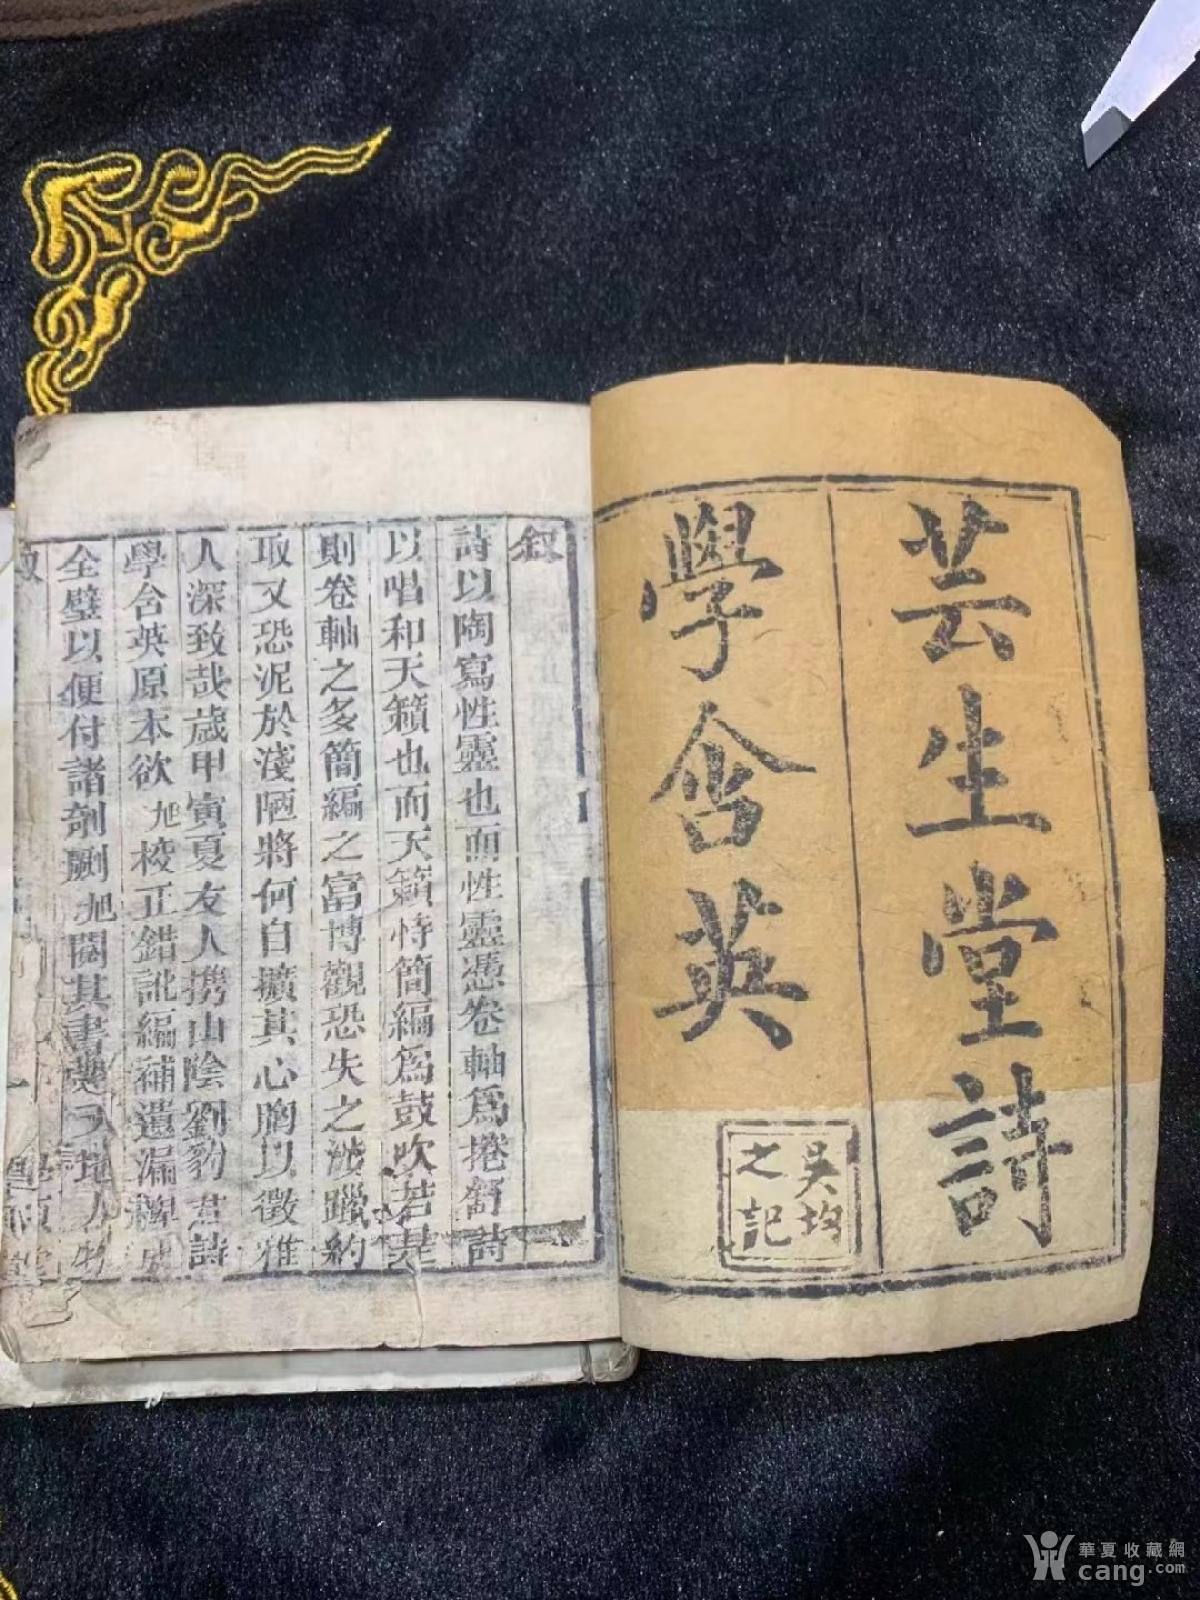 芸生堂詩
學含英
吳均
之記
叙
詩以陶寫性靈也而性靈憑卷軸爲捲舒詩
以唱和天籟也而天籟恃簡編爲鼓吹若是
則卷軸之多簡編之富博觀恐失之涉躐約
取又恐泥於淺陋將何自擴其心胸以徵雅
人深致哉歲甲寅夏友人携山陰劉豹君詩
學含英原本欲旭校正錯訛編補遺漏俾成
全璧以便付諸剞劂旭閱其書
叙
一
華夏收藏網
cang.com